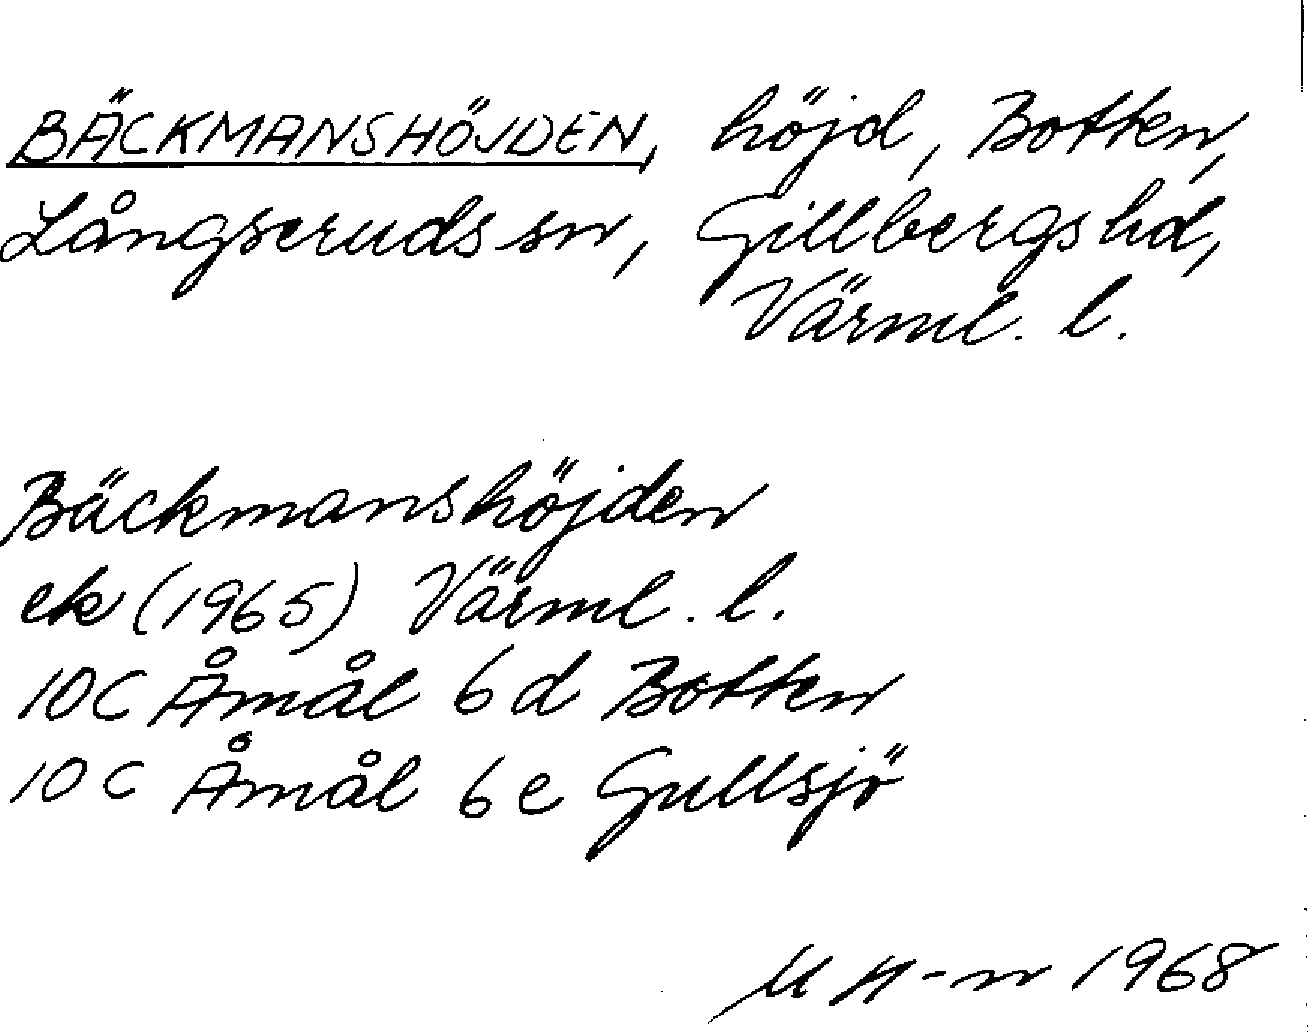 BÄCKMANSHÖJDEN, höjd, Botten,
Långseruds sn, Gillbergs hd,
Värml. l.
Bäckmanshöjden
ek (1965) Värml. l.
10C Åmål 6d Botten
10C Åmål 6e Gullsjö
1968